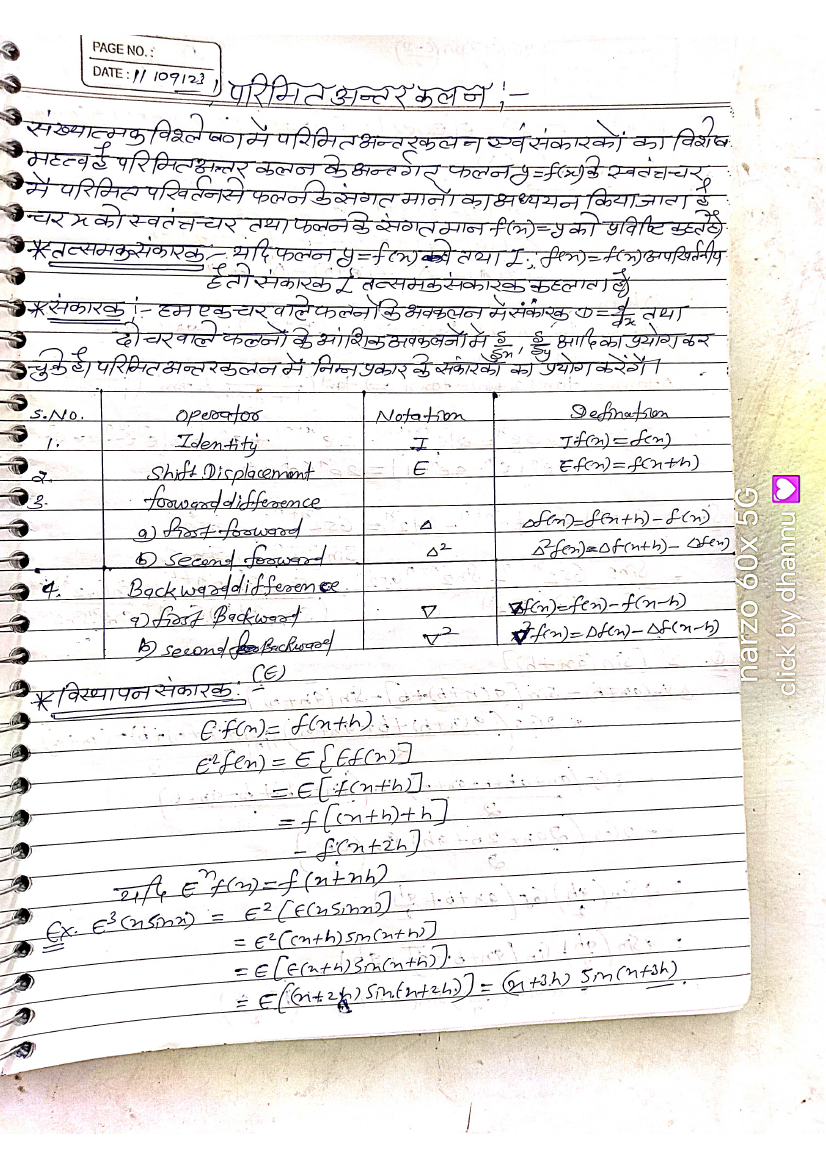 PAGE NO.:
DATE: 11/09/23
परिमित अन्तर कलन :-
संख्यात्मक विश्लेषण में परिमित अन्तरकलन एवं संकारकों का विशेष
महत्व है परिमित अन्तर कलन के अन्तर्गत फलन y=f(x) के स्वतंत्र चर
में परिमित परिवर्तन से फलन के संगत मानों का अध्ययन किया जाता है
चर x को स्वतंत्र चर तथा फलन के संगत मान f(x)=y को प्रविष्टि कहते है।
*तत्समक संकारक :- यदि फलन y=f(x) तथा I; f(x)=f(x) अपरिवर्तनीय
है तो संकारक I तत्समक संकारक कहलाता है।
*संकारक :- हम एक चर वाले फलनों के अवकलन में संकारक D=d/dx तथा
दो चर वाले फलनों के आंशिक अवकलनों में δ/δx, δ/δy आदि का प्रयोग कर
चुके है। परिमित अन्तर कलन में निम्न प्रकार के संकारकों का प्रयोग करेंगे।
S.No. Operator Notation Defination
1. Identity I If(x)=f(x)
2. Shift Displacement E Ef(x)=f(x+h)
3. forward difference
a) first forward Δ Δf(x)=f(x+h)-f(x)
b) second forward Δ² Δ²f(x)=Δf(x+h)-Δf(x)
4. Backward difference
a) first Backward ∇ ∇f(x)=f(x)-f(x-h)
b) second Backward ∇² ∇²f(x)=Δf(x)-Δf(x-h)
*विस्थापन संकारक :- (E)
E.f(x)= f(x+h)
E²f(x) = E{Ef(x)]
= E[f(x+h)].
= f[(x+h)+h]
- f(x+2h]
यदि Eⁿf(x)=f(x+nh)
Ex. E³(x sinx) = E²[E(x sinx)]
= E²[(x+h) sin(x+h)]
= E[E(x+h) sin(x+h)].
= E[(x+2h) sin(x+2h)] = (x+3h) sin(x+3h)
narzo 60x 5G
click by dhannu 💟